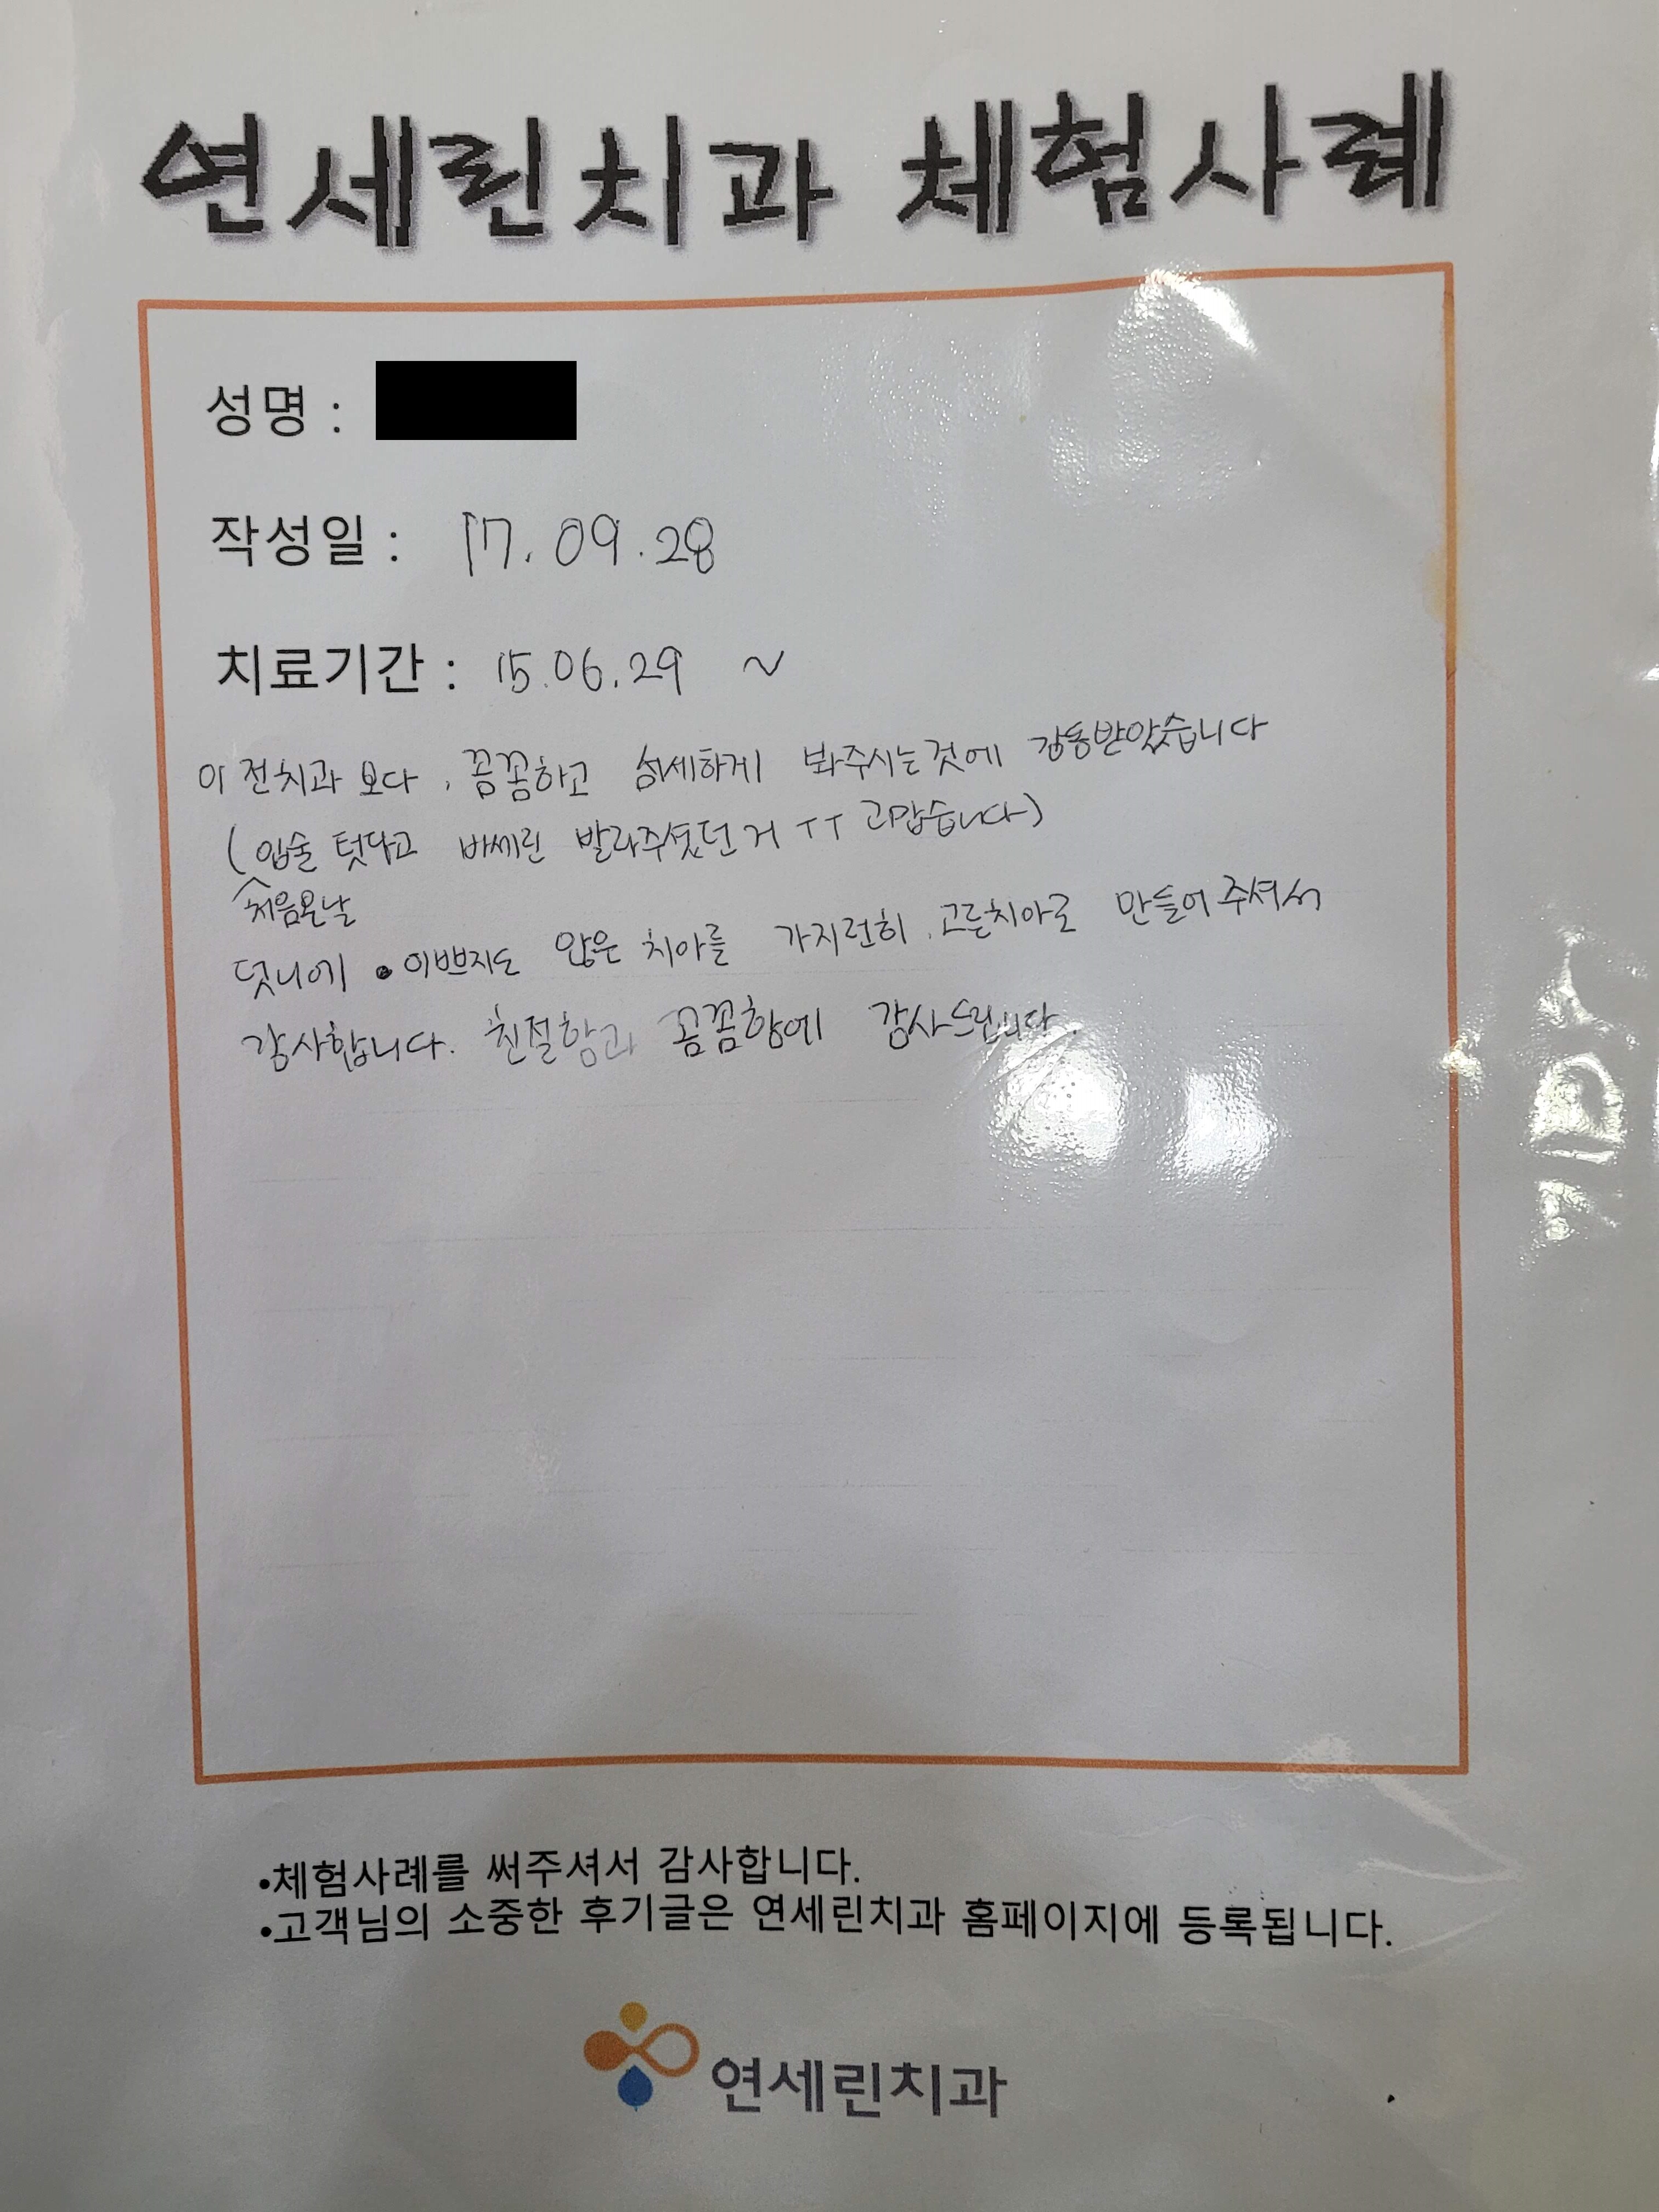 연세린치과 체험사례
성명 :
작성일 : 17. 09. 28
치료기간 : 15.06.29 ~
이전치과 보다, 꼼꼼하고 섬세하게 봐주시는것에 감동받았습니다
(입술 텃다고 바세린 발라주셨던거 ㅜㅜ 고맙습니다)
처음온날
덧니에 이쁘지도 않은 치아를 가지런히. 고른치아로 만들어주셔서
감사합니다. 친절함과 꼼꼼함에 감사드립니다.
•체험사례를 써주셔서 감사합니다.
•고객님의 소중한 후기글은 연세린치과 홈페이지에 등록됩니다.
연세린치과